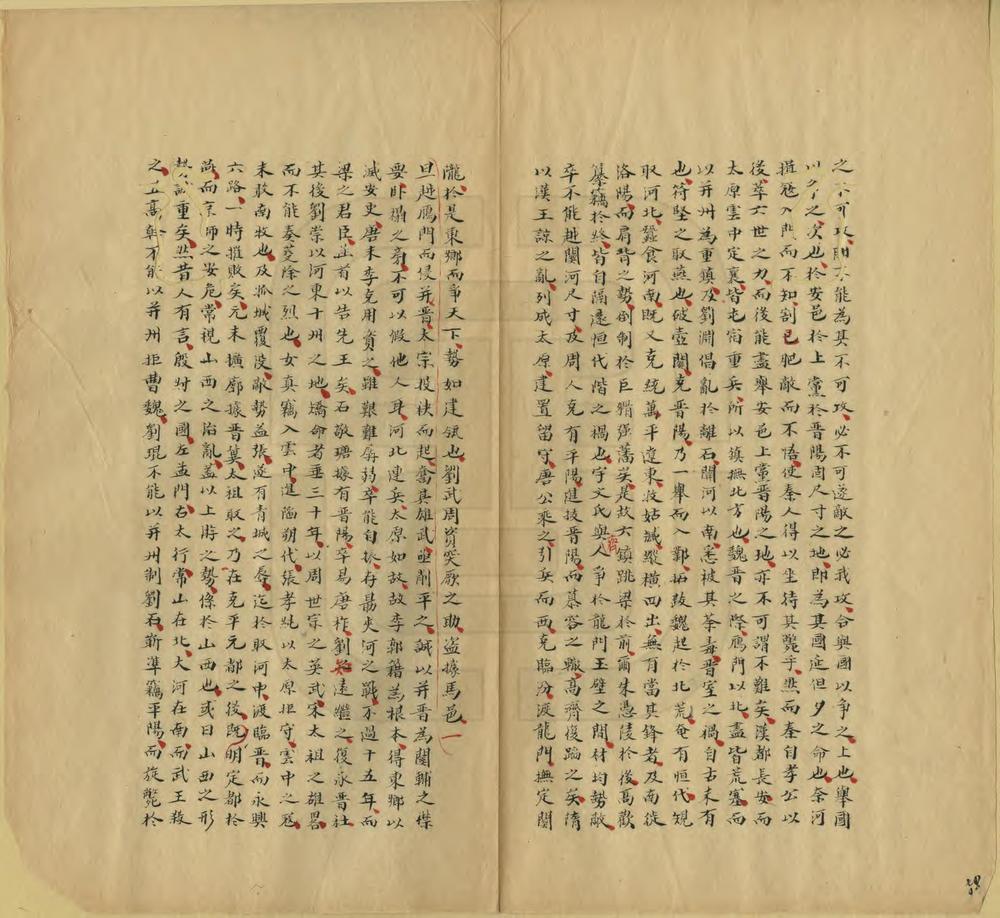 之不可攻則不能為其不可攻必不可遂敵之必我攻合與國以爭之上也舉國
以爭之次也於安邑於上黨於晉陽周尺寸之地即為其國延但夕之命也奈何
揖冦入門而不知割已肥敵而不悟使秦人得以坐待其斃乎然而秦自孝公以
後萃六世之力而後能盡舉安邑上黨晉陽之地亦不可謂不難矣漢都長安而
太原雲中定襄皆屯宿重兵所以鎮撫北方也魏晉之際鴈門以北盡皆荒塞而
以并州為重鎮及劉淵倡亂於離石關河以南悉被其荼毒晉室之禍自古未有
也苻堅之取燕也破壺關克晉陽乃一舉而入鄴拓跋魏起於北荒奄有恒代規
取河北蠶食河南既又克統萬平遼東收姑臧縱橫四出無有當其鋒者及南徙
洛陽而肩背之勢倒制於巨猾强藩矣是故六鎮跳梁於前爾朱憑陵於後高歡
纂竊於終皆自隔遠恒代階之禍也宇文氏與高齊人爭於龍門玉壁之間材均勢敵
卒不能越關河尺寸及周人克有平陽進拔晉陽而慕容之轍高齊復踰之矣隋
以漢王諒之亂列戍太原建置留守唐公乘之引兵而西克臨汾渡龍門撫定關
隴於是東鄉而爭天下勢如建瓴也劉武周資突厥之助盜據馬邑一
旦越鴈門而侵并晉太宗投袂而起奮其雄武亟削平之誠以并晉為關輔之襟
要臥榻之旁不可以假他人耳河北連兵太原如故故李郭籍為根本得東鄉以
滅安史唐末李克用資之雖艱難孱弱卒能自振存勗夾河之戰不過十五年而
梁之君臣並首以告先王矣石敬瑭據有晉陽卒易唐祚劉知遠繼之復永晉社
其後劉崇以河東十州之地矯命者垂三十年以周世宗之英武宋太祖之雄畧
而不能奏芟除之烈也女真竊入雲中進陷朔代張孝純以太原拒守雲中之冦
未敢南牧也及孤城覆没敵勢益張遂有青城之辱迄於取河中渡臨晉而永興
六路一時摧敗矣元末擴廓據晉冀太祖取之乃在克平元都之後既明定都於
燕而京師之安危常視山西之治亂蓋以上游之勢係於山西也或曰山西之形
勢誠重矣然昔人有言殷紂之國左孟門右太行常山在北大河在南而武王殺
之高幹不能以并州拒曹魏劉琨不能以并州制劉石靳準竊平陽而旋斃於